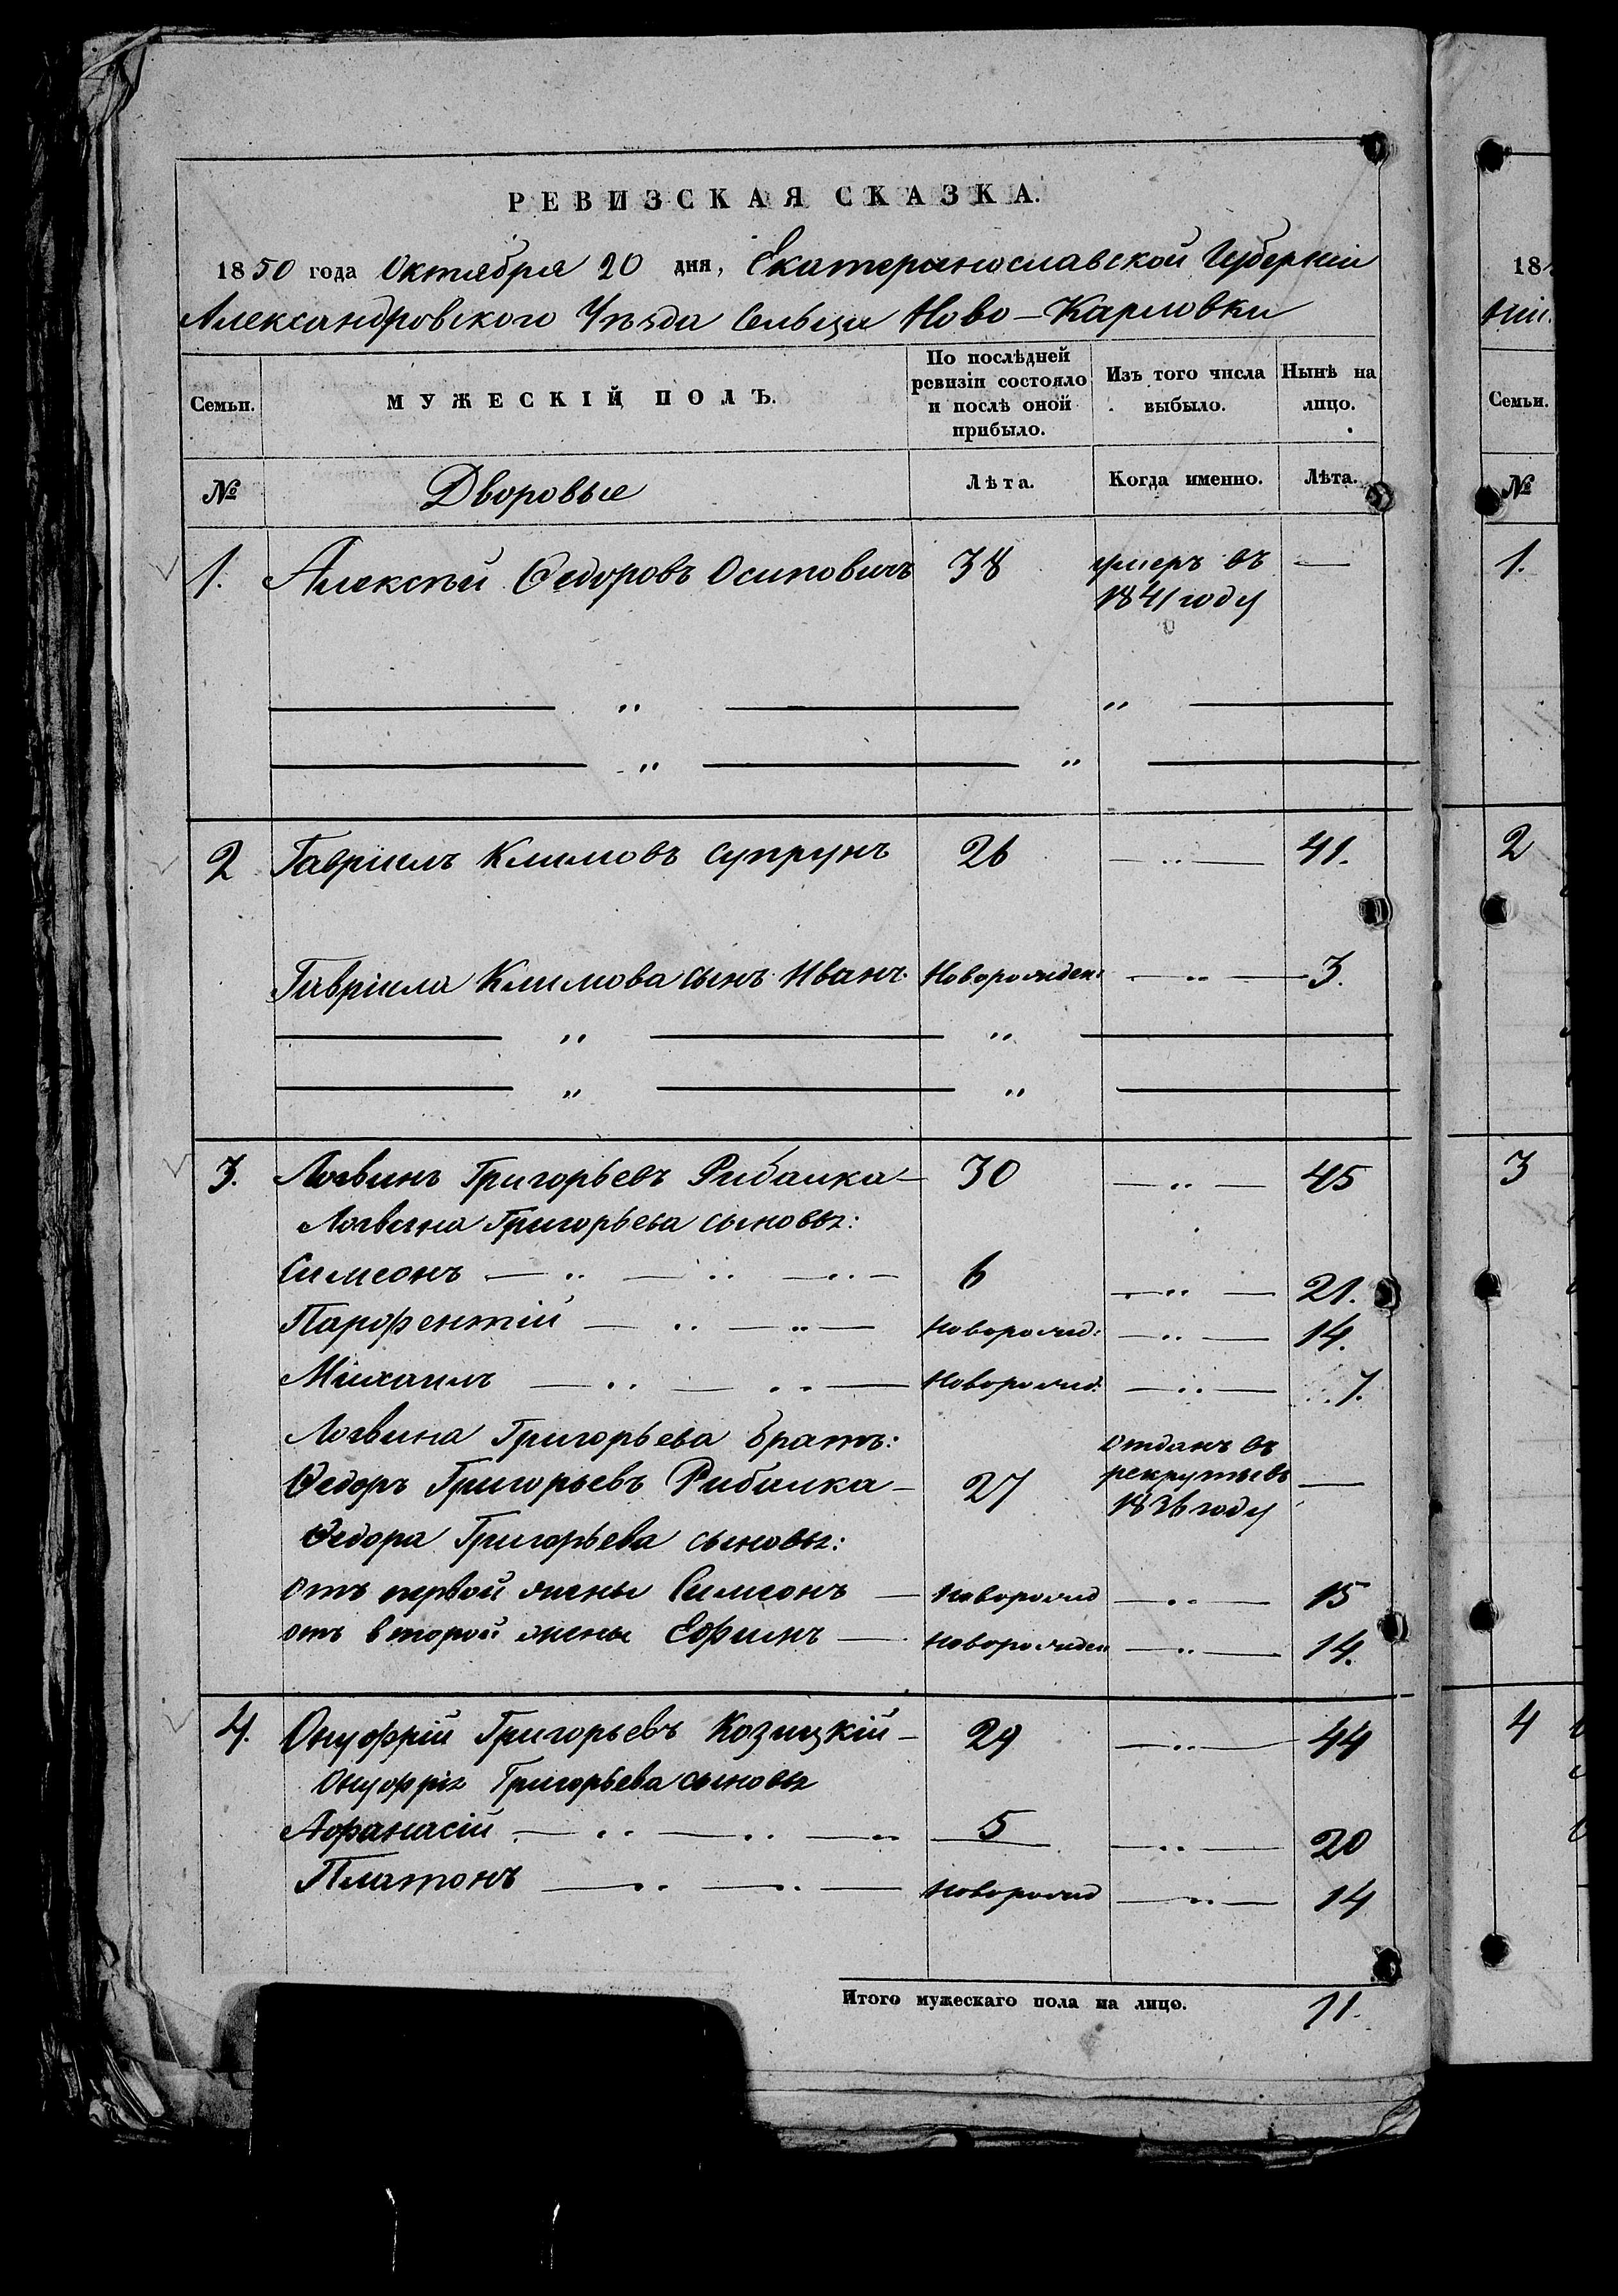 РЕВИЗСКАЯ СКАЗКА.
1850 года Октября 20 дня, Екатеринославской Губерніи
Александровского Уѣзда Сельца Ново-Карловки
Семьи.
МУЖЕСКІЙ ПОЛЪ.
По послѣдней ревизіи состояло и послѣ оной прибыло.
Изъ того числа выбыло.
Нынѣ на лицо.
№ Дворовые Лѣта. Когда именно. Лѣта.
1. Алексѣй Федоровъ Осиповичъ 38 умеръ въ —
1841 году
— " — " —
— " — " —
2 Гавриилъ Климовъ Супрунъ 26 — " — 41.
Гавріила Климова сынъ Иванъ. Новорожден: — " — 3.
— " — " —
— " — " —
3. Логвинъ Григорьевъ Рибалка — 30 — " — 45
Логвина Григорьева сыновья:
Симеонъ — " — " — " — 6 — " — 21.
Парфентій — " — " — Новорожд: — " — 14.
Михаилъ — " — " — Новорожд: — " — 7.
Логвина Григорьева братъ: отданъ въ
Федоръ Григорьевъ Рибалка — 27 рекруты въ —
1836 году
Федора Григорьева сыновья:
отъ первой жены Симеонъ — Новорожд — " — 15
отъ второй жены Ефимъ — Новорожден — " — 14.
4. Онуфрій Григорьевъ Козицкій — 29 — " — 44
Онуфрія Григорьева сыновья
Афанасій — " — " — " 5 — " — 20
Платонъ — " — " — Новорожд — " — 14
Итого мужескаго пола на лицо. 11.
18
Семьи.
№
1.
2
3
4